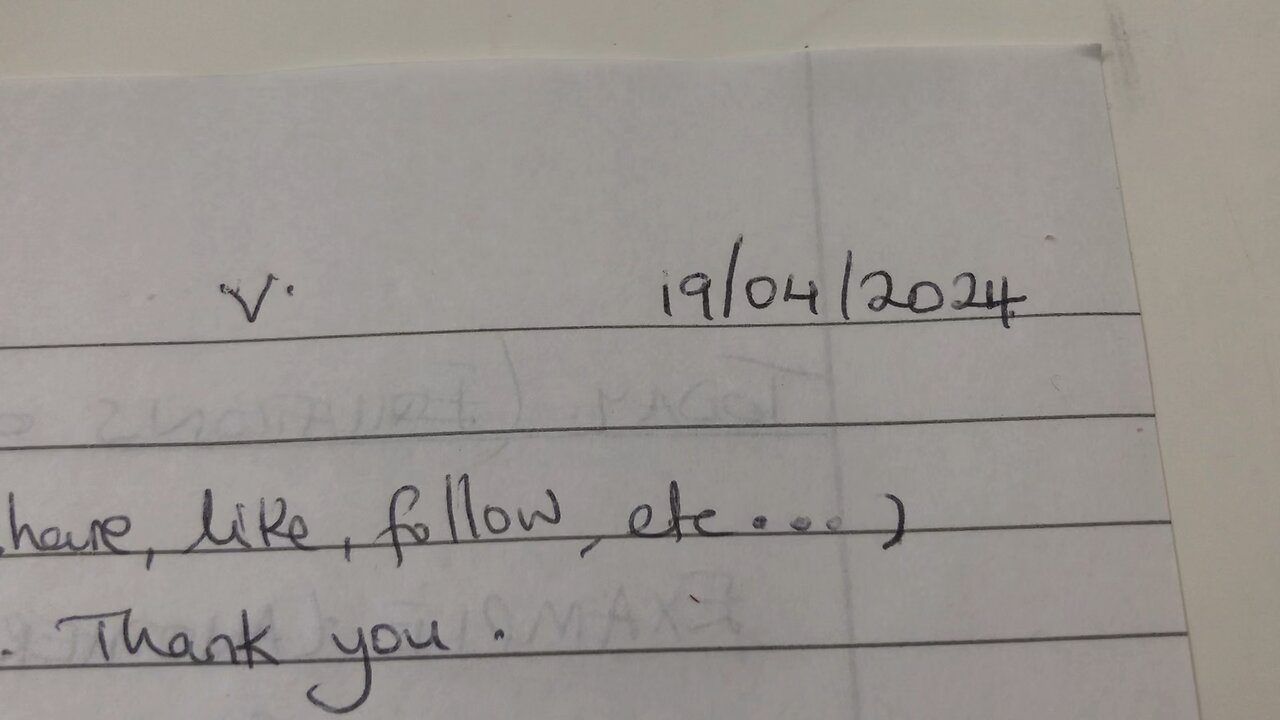 V. 19/04/2024
share, like, follow, etc....)
. Thank you.